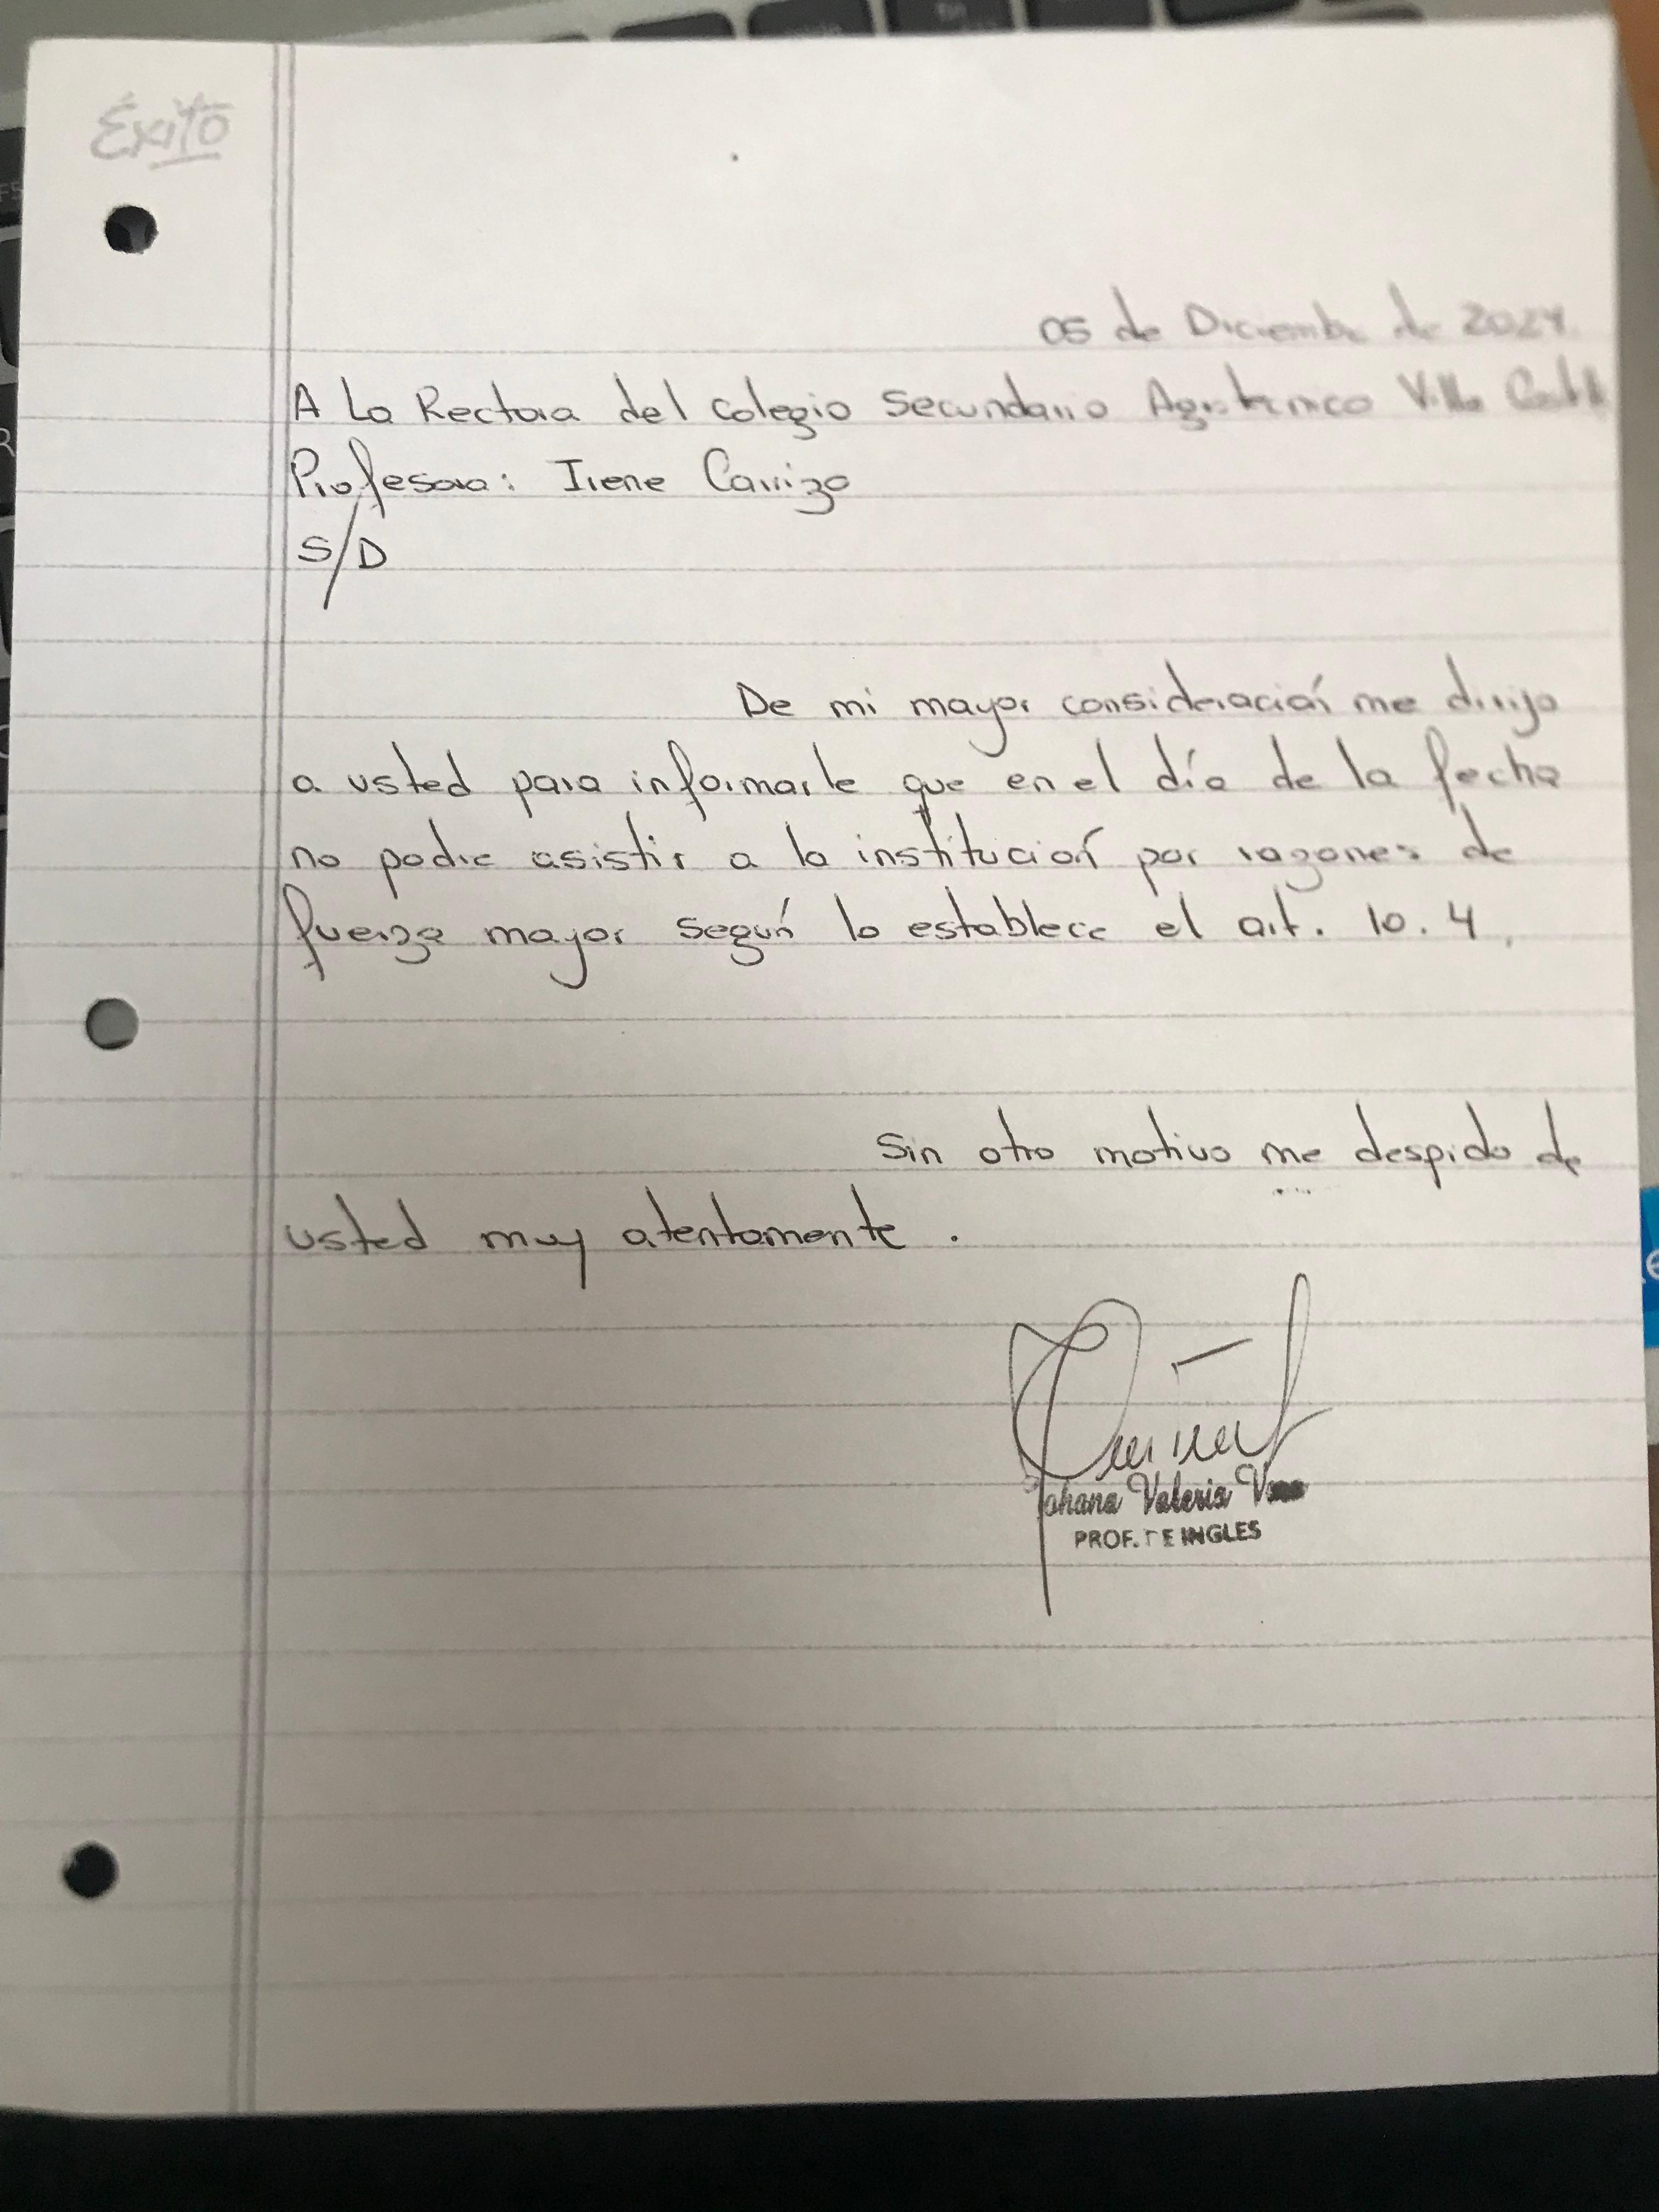 Éxito
05 de Diciembre de 2024.
A La Rectora del colegio Secundario Agrotecnico Villa
Profesora: Irene Carrizo
S/D
De mi mayor consideración me dirijo
a usted para informarle que en el día de la fecha
no podre asistir a la institución por razones de
fuerza mayor según lo establece el art. 10.4.
Sin otro motivo me despido de
usted muy atentamente.
Johana Valeria
PROF. DE INGLES